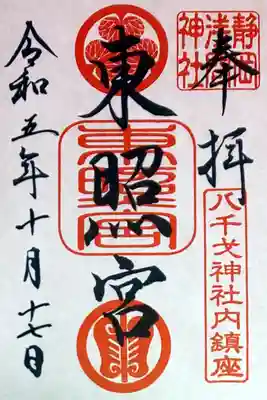 奉拝
静岡
浅間
神社
八千戈神社内鎮座
東照宮
東照宮
令和五年十月十七日